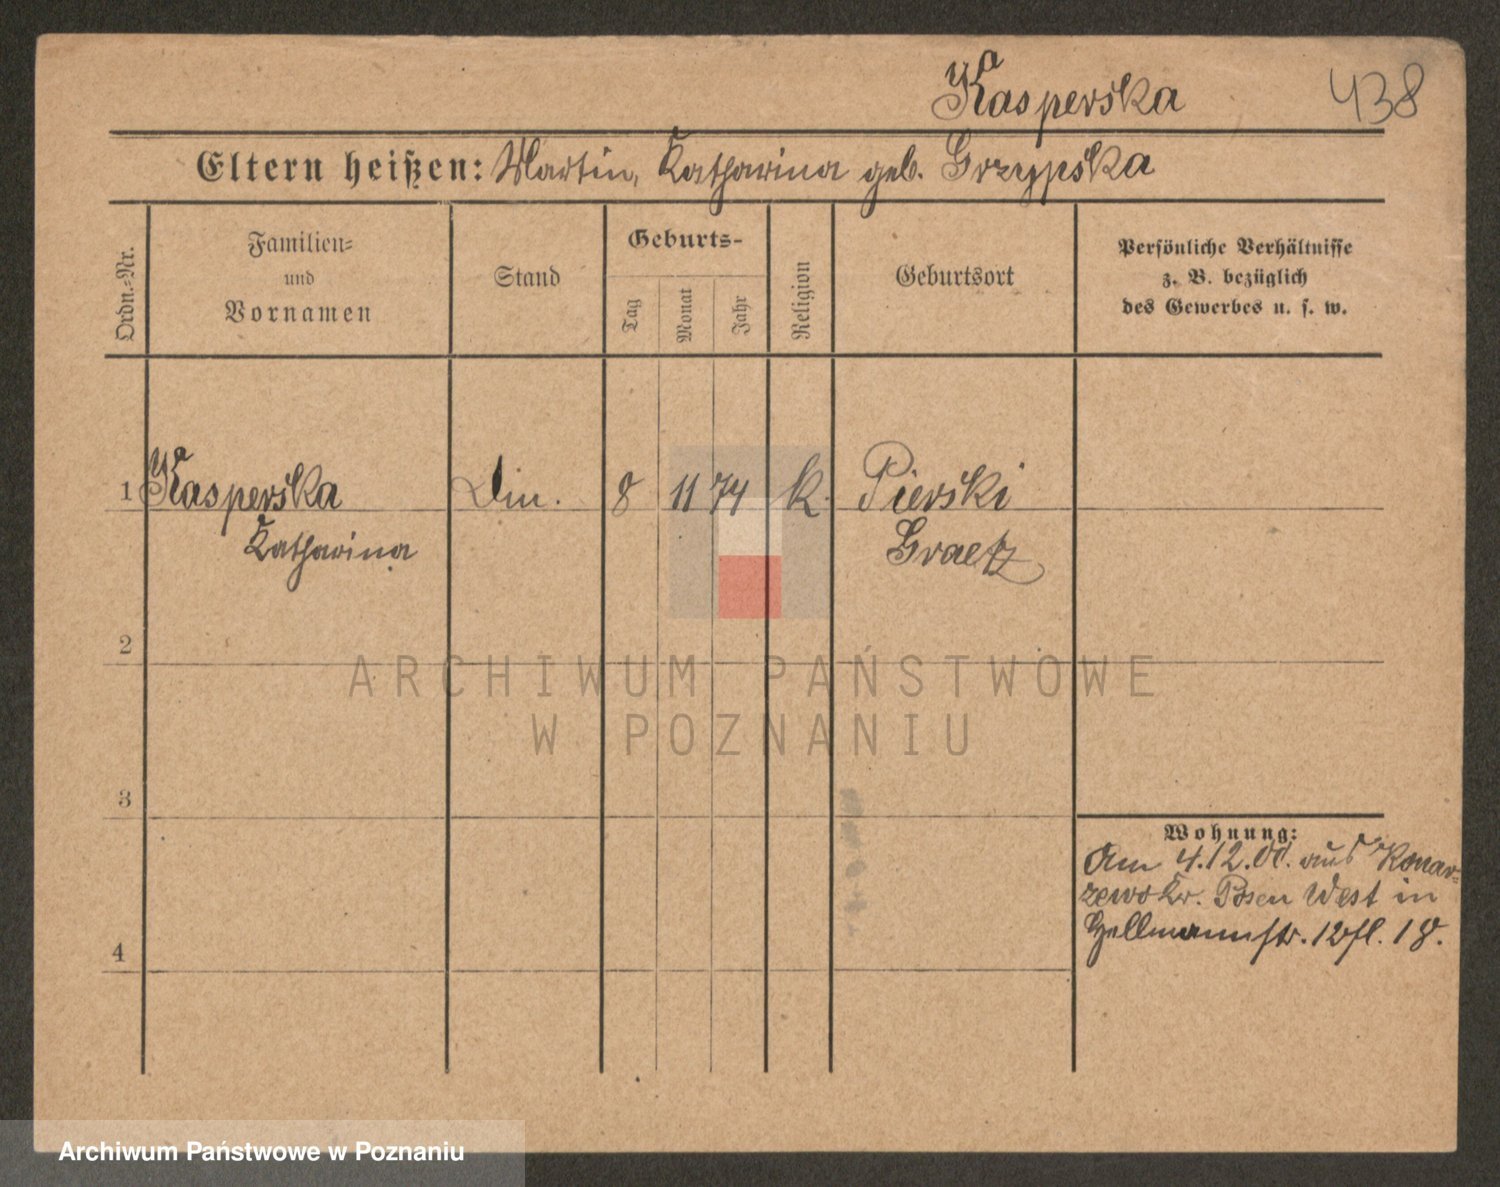 Kasperska 438
Eltern heißen: Martin, Katharina geb. Grzypska
Ordn.-Nr.
Familien-
und
Vornamen
Stand
Geburts-
Tag
Monat
Jahr
Religion
Geburtsort
Persönliche Verhältnisse
z. B. bezüglich
des Gewerbes u. s. w.
1 Kasperska Din. 8 11 74 k. Pierski
Katharina Graetz
2
ARCHIWUM PAŃSTWOWE
W POZNANIU
3
Wohnung:
Am 4.12.00. aus Konar-
zewo Kr. Posen West in
str. 18.
4
Archiwum Państwowe w Poznaniu